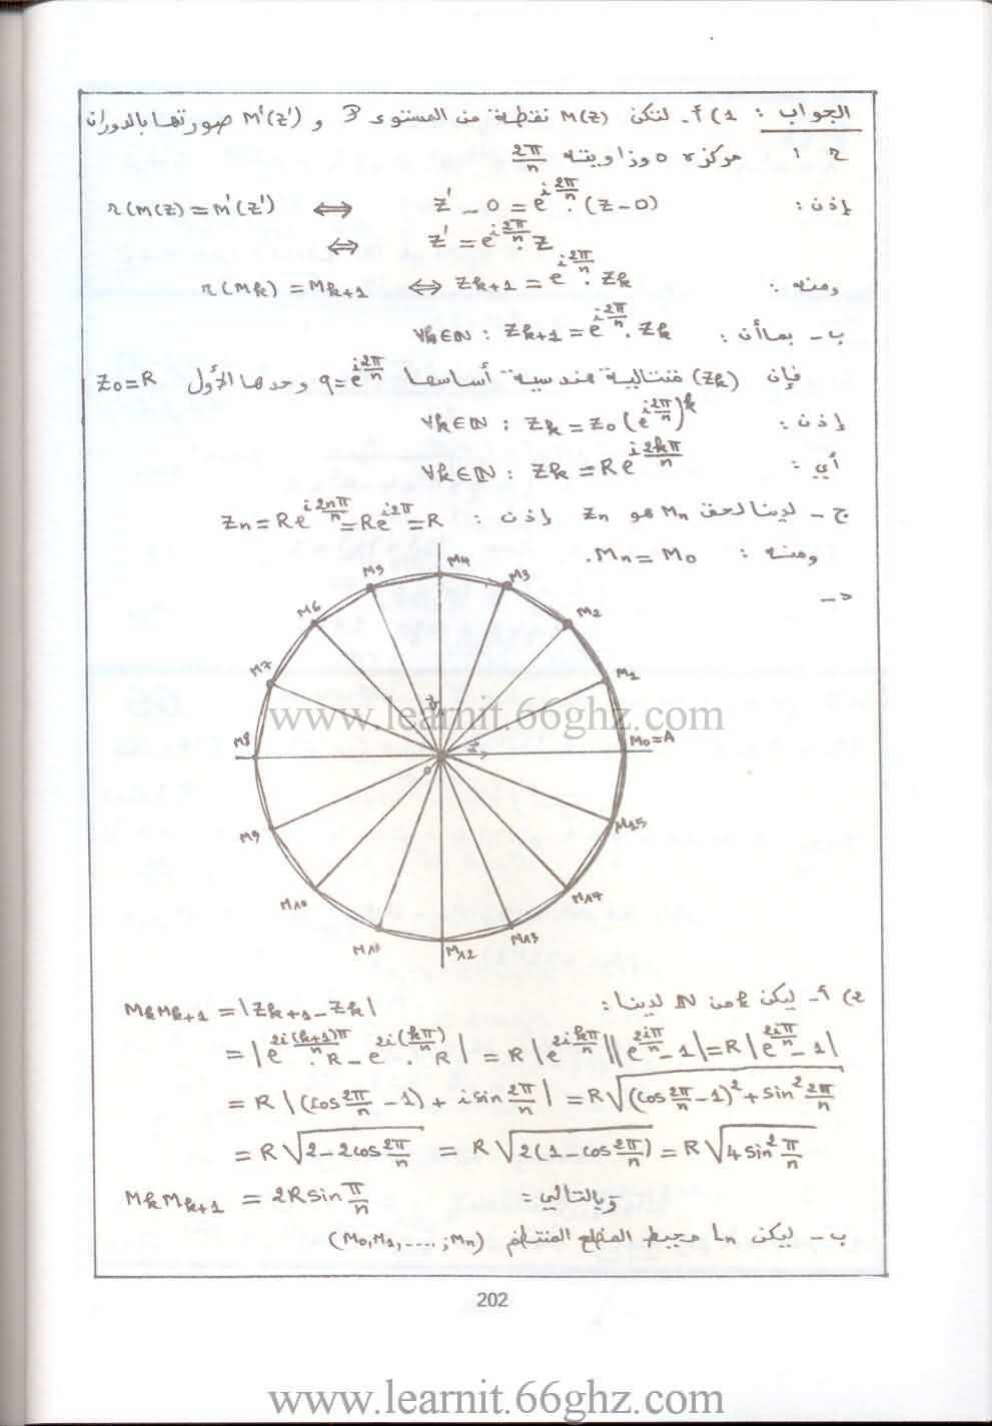 الجواب : 1) أ- لتكن M(z) نقطة من المستوى P و M'(z') صورتها بالدوران
r مركزه o وزاويته 2π/n
إذن : z' - 0 = e^{i2π/n} . (z-0) ⇔ r(M(z) = M'(z')
⇔ z' = e^{i2π/n} . z
ومنه : r(Mk) = Mk+1 ⇔ zk+1 = e^{i2π/n} . zk
ب - بما أن : ∀k∈ℕ : zk+1 = e^{i2π/n} . zk
فإن (zk) متتالية هندسية أساسها q = e^{i2π/n} وحدها الأول z0 = R
إذن : ∀k∈ℕ : zk = z0 (e^{i2π/n})^k
أي : ∀k∈ℕ : zk = R e^{i2kπ/n}
ج - لدينا لحق Mn هو zn إذن : zn = Re^{i2nπ/n} = Re^{i2π} = R
ومنه : Mn = M0.
د -
M5 M4 M3
M6 M2
M7 M1
www.learnit.66ghz.com
M8 j i M0=A
o
M9 M15
M10 M14
M11 M12 M13
2) أ- ليكن k من ℕ لدينا : MkMk+1 = |zk+1 - zk|
= |e^{2i(k+1)π/n} . R - e^{2i(kπ/n)} . R| = R |e^{2ikπ/n}| |e^{2iπ/n} - 1| = R |e^{2iπ/n} - 1|
= R |(cos 2π/n - 1) + i sin 2π/n| = R √((cos 2π/n - 1)² + sin² 2π/n)
= R √(2 - 2cos 2π/n) = R √(2(1 - cos 2π/n)) = R √(4 sin² π/n)
وبالتالي : MkMk+1 = 2R sin π/n
ب - ليكن Ln محيط المضلع المنتظم (M0,M1,....;Mn)
202
www.learnit.66ghz.com